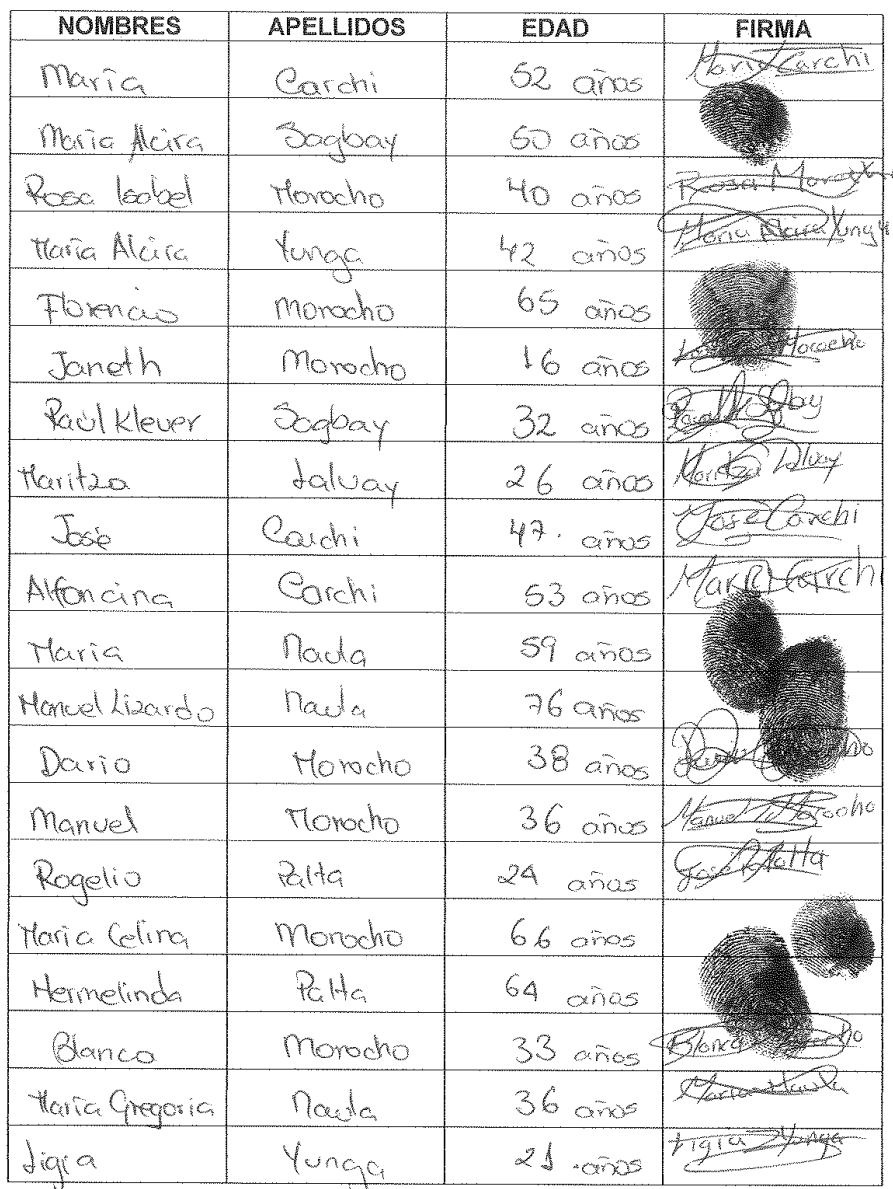 NOMBRES APELLIDOS EDAD FIRMA
María Carchi 52 años María Carchi
María Alcira Sagbay 50 años
Rosa Isabel Morocho 40 años Rosa Morocho
María Alcira Yunga 42 años Maria Alcira Yunga
Florencio Morocho 65 años
Janeth Morocho 16 años Morocho
Raúl Klever Sagbay 32 años
Maritza Saluay 26 años Maritza Saluay
José Carchi 47. años José Carchi
Alfoncina Carchi 53 años Carchi
María Naula 59 años
Manuel Lizardo Naula 76 años
Dario Morocho 38 años
Manuel Morocho 36 años Manuel Morocho
Rogelio Palta 24 años José Palta
María Celina Morocho 66 años
Hermelinda Palta 64 años
Blanca Morocho 33 años Blanca
María Gregoria Naula 36 años Maria Naula
Ligia Yunga 21 años Ligia Yunga